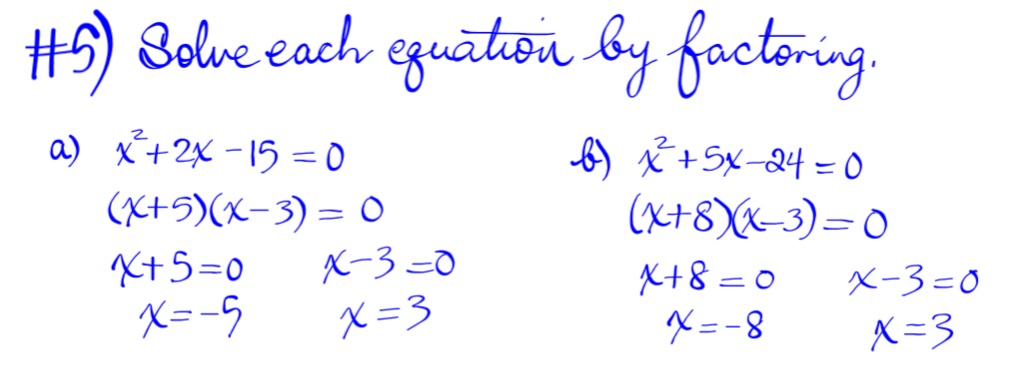 #5) Solve each equation by factoring.
a) x²+2x-15=0
(x+5)(x-3)=0
x+5=0 x-3=0
x=-5 x=3
b) x²+5x-24=0
(x+8)(x-3)=0
x+8=0 x-3=0
x=-8 x=3